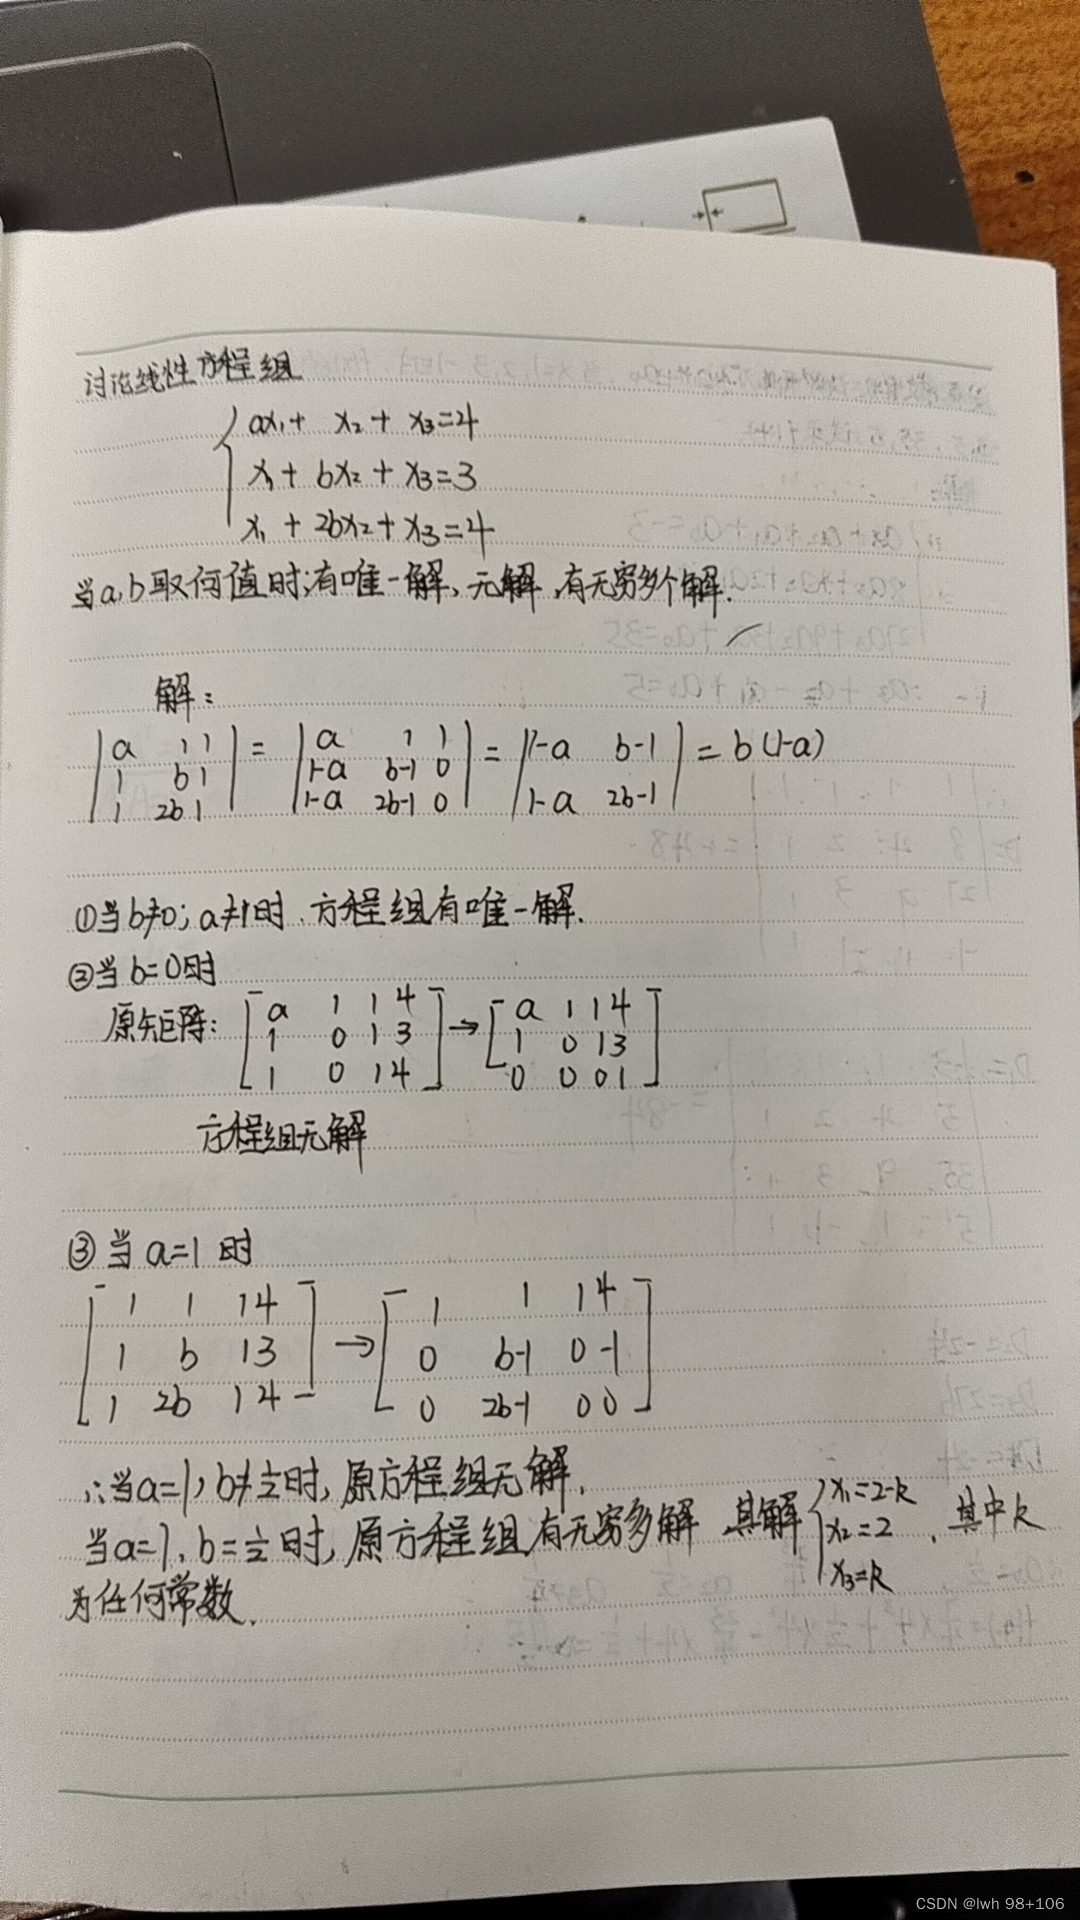 讨论线性方程组
ax₁ + x₂ + x₃=4
x₁ + bx₂ + x₃=3
x₁ + 2bx₂ + x₃=4
当a,b取何值时;有唯一解、无解、有无穷多个解.
解:
|a 1 1| = |a 1 1| = |1-a b-1| = b(1-a)
|1 b 1| |1-a b-1 0| |1-a 2b-1|
|1 2b 1| |1-a 2b-1 0|
①当b≠0; a≠1时.方程组有唯一解.
②当b=0时
原矩阵: [a 1 1 4] → [a 1 1 4]
[1 0 1 3] [1 0 1 3]
[1 0 1 4] [0 0 0 1]
方程组无解
③当a=1时
[1 1 1 4] → [1 1 1 4]
[1 b 1 3] [0 b-1 0 -1]
[1 2b 1 4] [0 2b-1 0 0]
∴当a=1, b≠½时,原方程组无解.
当a=1, b=½时,原方程组有无穷多解 其解{x₁=2-k x₂=2 x₃=k , 其中k
为任何常数.
CSDN @lwh 98+106